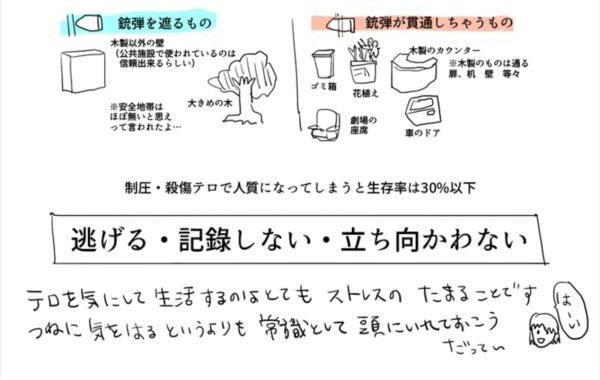 銃弾を遮るもの
木製以外の壁
（公共施設で使われているのは
信頼出来るらしい）
大きめの木
※安全地帯は
ほぼ無いと思え
って言われたよ…
銃弾が貫通しちゃうもの
ゴミ箱
花植え
木製のカウンター
※木製のものは通る
扉、机　壁　等々
劇場の
座席
車のドア
制圧・殺傷テロで人質になってしまうと生存率は30%以下
逃げる・記録しない・立ち向かわない
テロを気にして生活するのはとても ストレスの たまることです
つねに 気をはる というよりも 常識として 頭にいれておこう
だってぃ
はーい